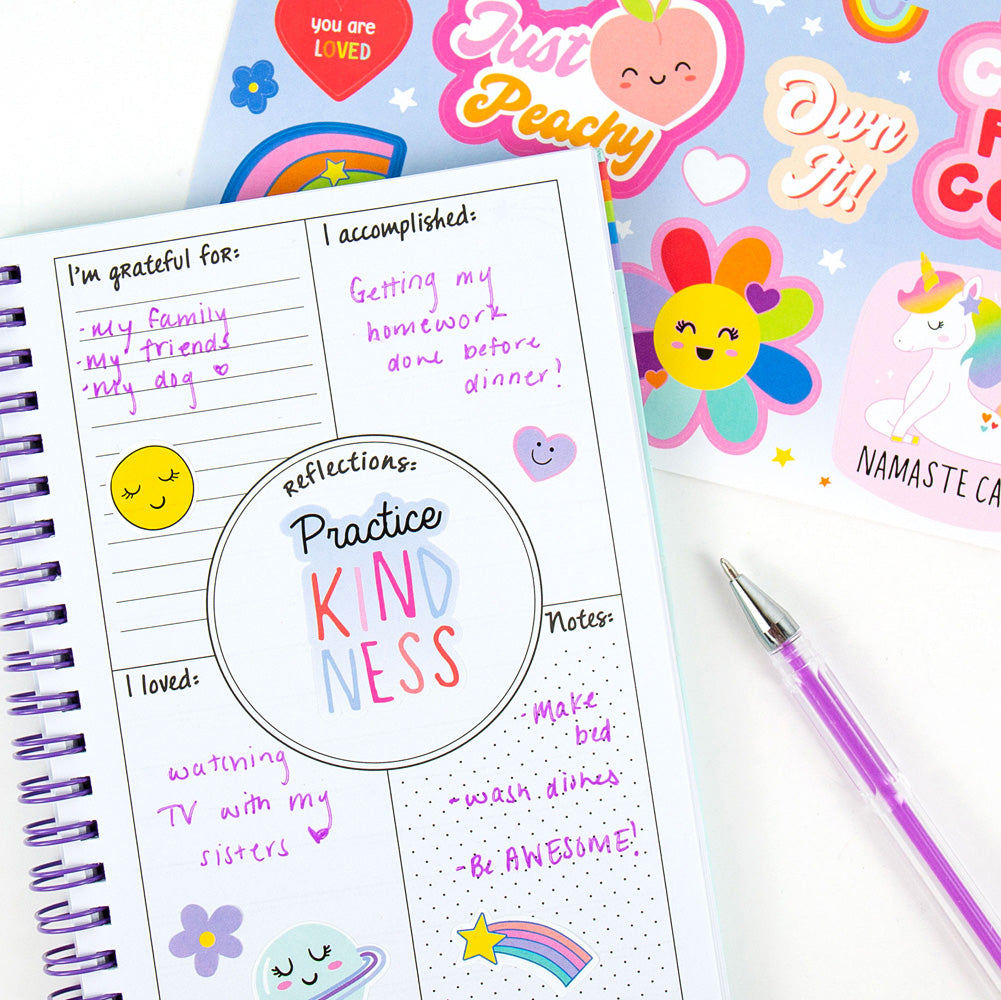 you are
LOVED
Just
Peachy
Own
It!
NAMASTE
I'm grateful for:
- my family
- my friends
- my dog
I accomplished:
Getting my
homework
done before
dinner!
Reflections:
Practice
KIND
NESS
I loved:
watching
TV with my
sisters
Notes:
- Make
bed
- wash dishes
- Be AWESOME!